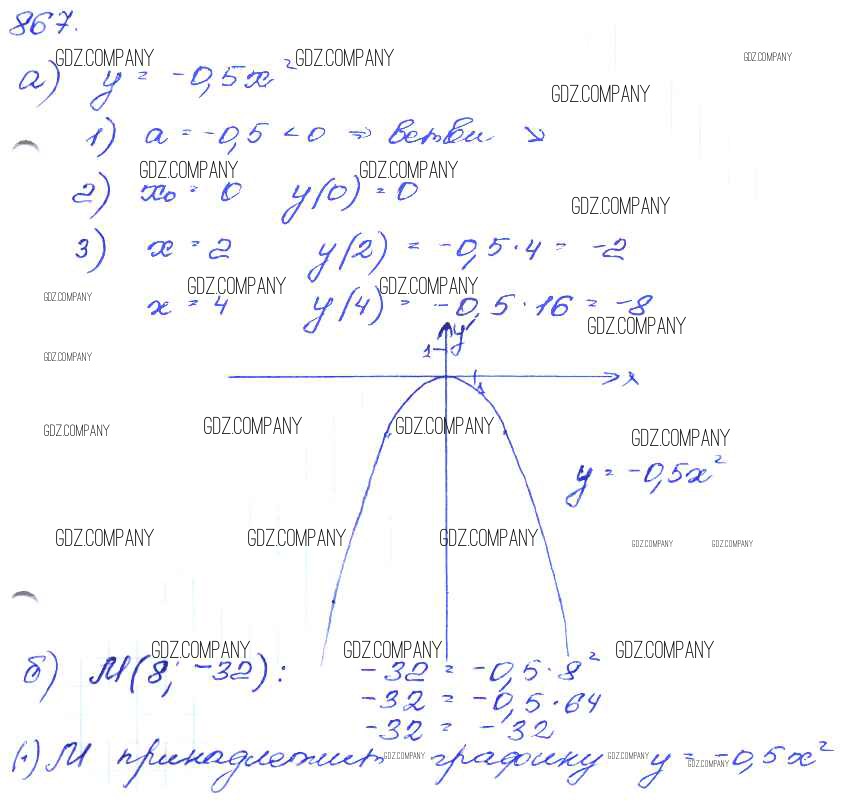 867.
GDZ.COMPANY GDZ.COMPANY GDZ.COMPANY
а) y = -0,5x² GDZ.COMPANY
1) a = -0,5 < 0 ⇒ ветви ↘
GDZ.COMPANY GDZ.COMPANY
2) x₀ = 0 y(0) = 0 GDZ.COMPANY
3) x = 2 y(2) = -0,5·4 = -2
GDZ.COMPANY GDZ.COMPANY GDZ.COMPANY
x = 4 y(4) = -0,5·16 = -8
GDZ.COMPANY
y
1
GDZ.COMPANY
x
1
GDZ.COMPANY GDZ.COMPANY GDZ.COMPANY GDZ.COMPANY
y = -0,5x²
GDZ.COMPANY GDZ.COMPANY GDZ.COMPANY GDZ.COMPANY GDZ.COMPANY
GDZ.COMPANY GDZ.COMPANY GDZ.COMPANY
б) M(8; -32): -32 = -0,5·8²
-32 = -0,5·64
-32 = -32
(+) M принадлежит GDZ.COMPANY графику GDZ.COMPANY y = -0,5x²
GDZ.COMPANY